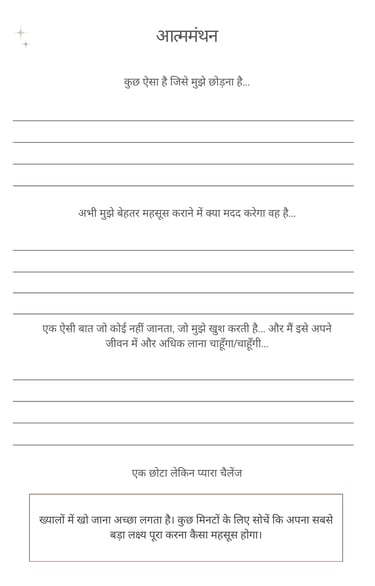 आत्ममंथन
कुछ ऐसा है जिसे मुझे छोड़ना है...
अभी मुझे बेहतर महसूस कराने में क्या मदद करेगा वह है...
एक ऐसी बात जो कोई नहीं जानता, जो मुझे खुश करती है... और मैं इसे अपने
जीवन में और अधिक लाना चाहूँगा/चाहूँगी...
एक छोटा लेकिन प्यारा चैलेंज
ख्यालों में खो जाना अच्छा लगता है। कुछ मिनटों के लिए सोचें कि अपना सबसे
बड़ा लक्ष्य पूरा करना कैसा महसूस होगा।